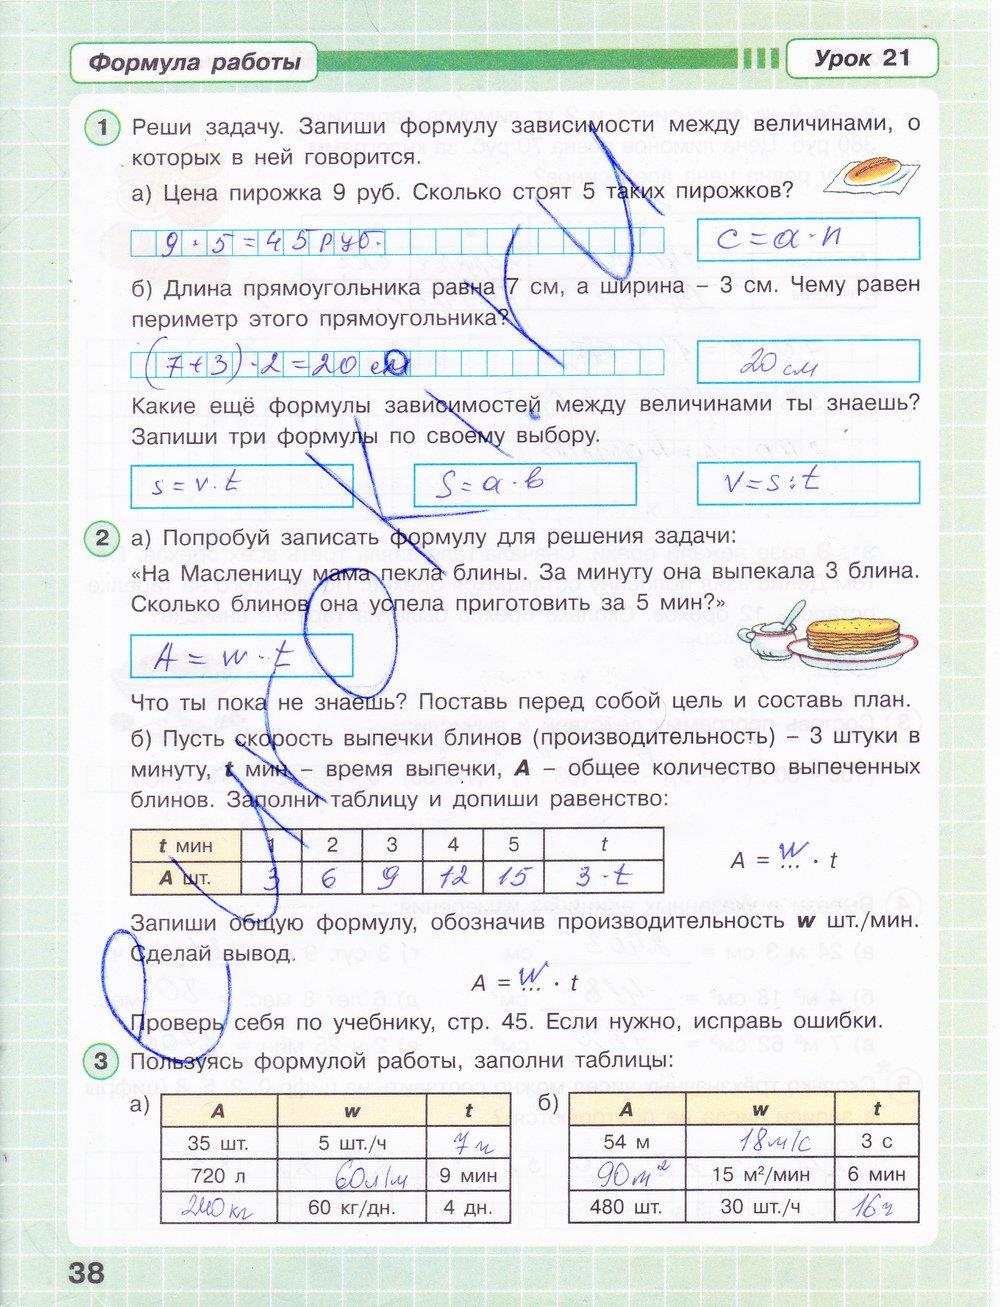 Формула работы
Урок 21
1 Реши задачу. Запиши формулу зависимости между величинами, о
которых в ней говорится.
а) Цена пирожка 9 руб. Сколько стоят 5 таких пирожков?
9 · 5 = 45 руб.
C = a · n
б) Длина прямоугольника равна 7 см, а ширина – 3 см. Чему равен
периметр этого прямоугольника?
(7+3) · 2 = 20 см
20 см
Какие ещё формулы зависимостей между величинами ты знаешь?
Запиши три формулы по своему выбору.
s = v · t
S = a · b
V = s : t
2 а) Попробуй записать формулу для решения задачи:
«На Масленицу мама пекла блины. За минуту она выпекала 3 блина.
Сколько блинов она успела приготовить за 5 мин?»
A = w · t
Что ты пока не знаешь? Поставь перед собой цель и составь план.
б) Пусть скорость выпечки блинов (производительность) – 3 штуки в
минуту, t мин – время выпечки, A – общее количество выпеченных
блинов. Заполни таблицу и допиши равенство:
t мин 1 2 3 4 5 t
A шт. 3 6 9 12 15 3 · t
A = w · t
Запиши общую формулу, обозначив производительность w шт./мин.
Сделай вывод.
A = w · t
Проверь себя по учебнику, стр. 45. Если нужно, исправь ошибки.
3 Пользуясь формулой работы, заполни таблицы:
а)
A w t
35 шт. 5 шт./ч 7 ч
720 л 9 мин
240 кг 60 кг/дн. 4 дн.
б)
A w t
54 м 18 м/с 3 с
90 м² 15 м²/мин 6 мин
480 шт. 30 шт./ч 16 ч
38